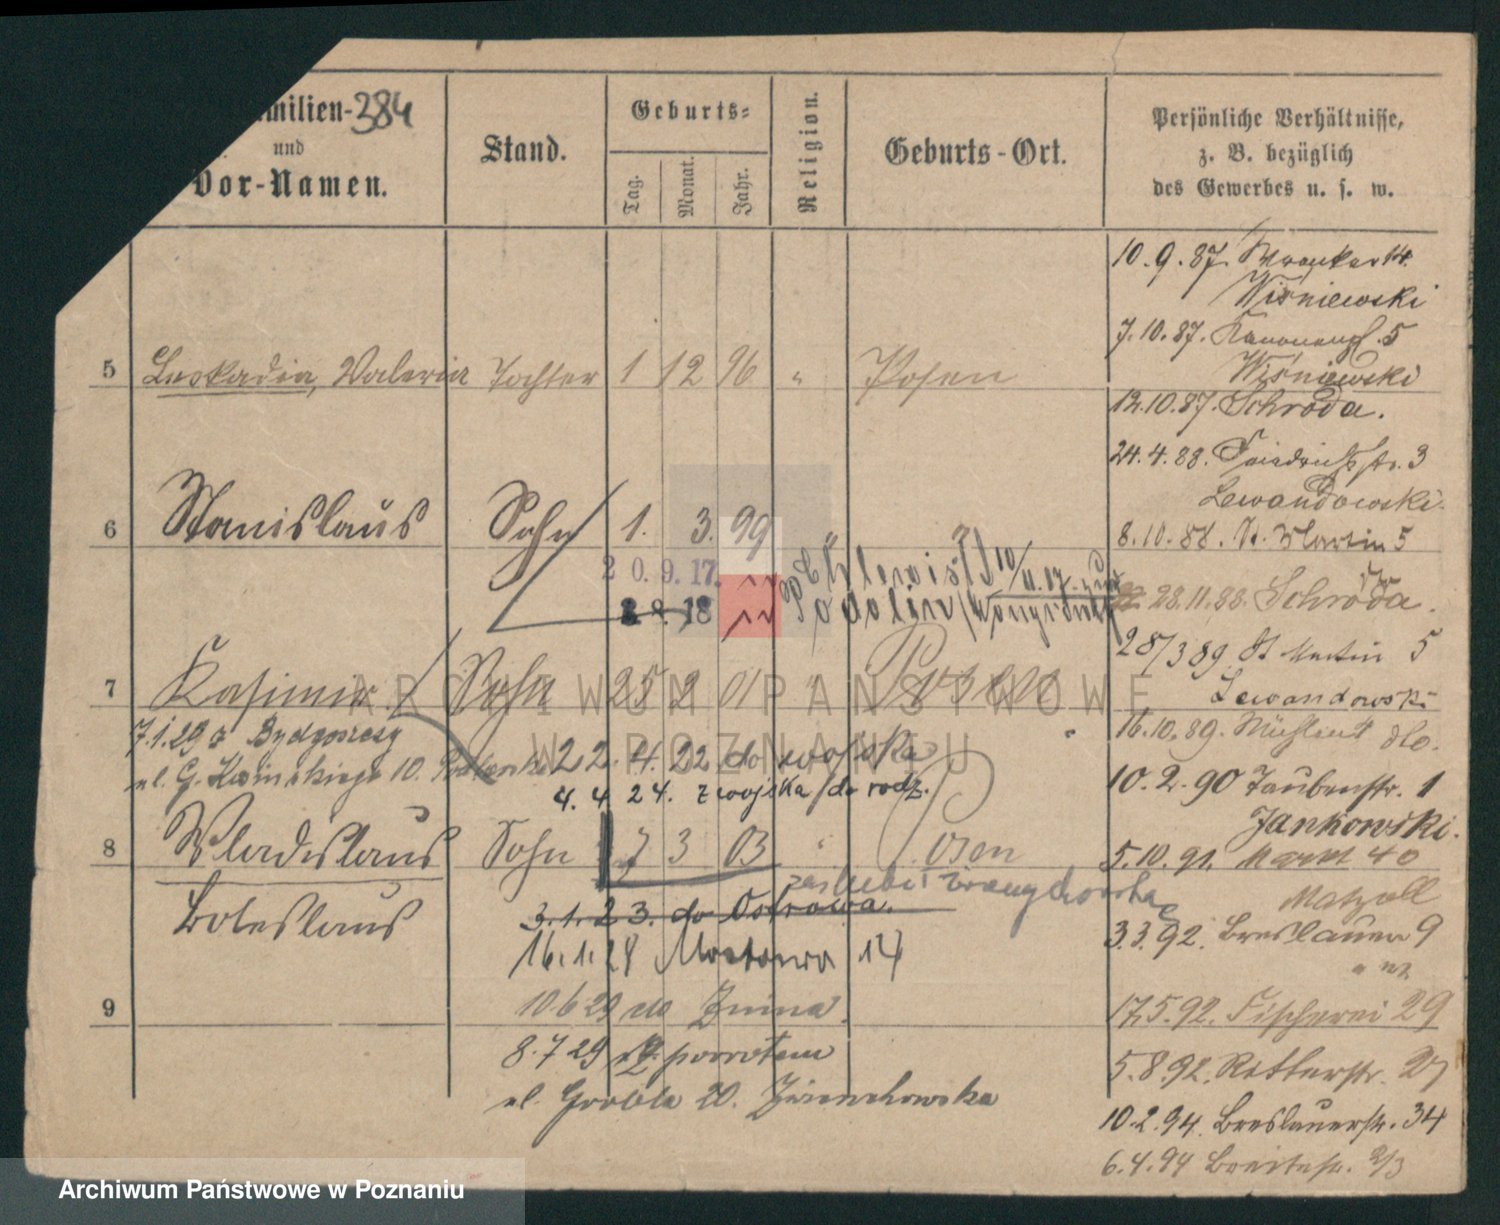 milien- 384
und
Vor-Namen.
Stand.
Geburts-
Tag.
Monat.
Jahr.
Religion.
Geburts-Ort.
Persönliche Verhältnisse,
z. B. bezüglich
des Gewerbes u. s. w.
10.9.87. Wronker 14.
Wiśniewski
7.10.87. Kanonenpl. 5
Wiśniewski
12.10.87. Schroda.
24.4.88. Friedrichstr. 3
Lewandowski.
8.10.88. St. Martin 5
28.11.88. Schroda.
28/3 89 St Martin 5
Lewandowski
16.10.89. Mühlenst dto.
10.2.90 Taubenstr. 1
Jankowski.
5.10.91. Markt 40
Matzoll
3.3.92. Breslauer 9
17.5.92. Fischerei 29
5.8.92. Ritterstr.
10.2.94. Breslauerstr. 34
6.4.94 Breitestr. 2/3
5 Leokadia, Valeria Tochter 1 12 96 " Posen
6 Stanislaus Sohn 1. 3. 99
20.9.17.
8. 18
7 Kasimir Sohn 25 2 01 " Posen
7.1.29 z Bydgoszczy
ul. G. Kosińskiego 10.
22.4.22 do wojska
4.4 24. z wojska do rodz.
8 Wladislaus Sohn 7 3 03 " Posen
Boleslaus
3.1.23. do Ostrowa.
16.1.28 Mostowa 14
9
10 6 29 do Żnina.
8.7 29 powrotem
ul. Grobla 20.
ARCHIWUM PAŃSTWOWE
W POZNANIU
Archiwum Państwowe w Poznaniu